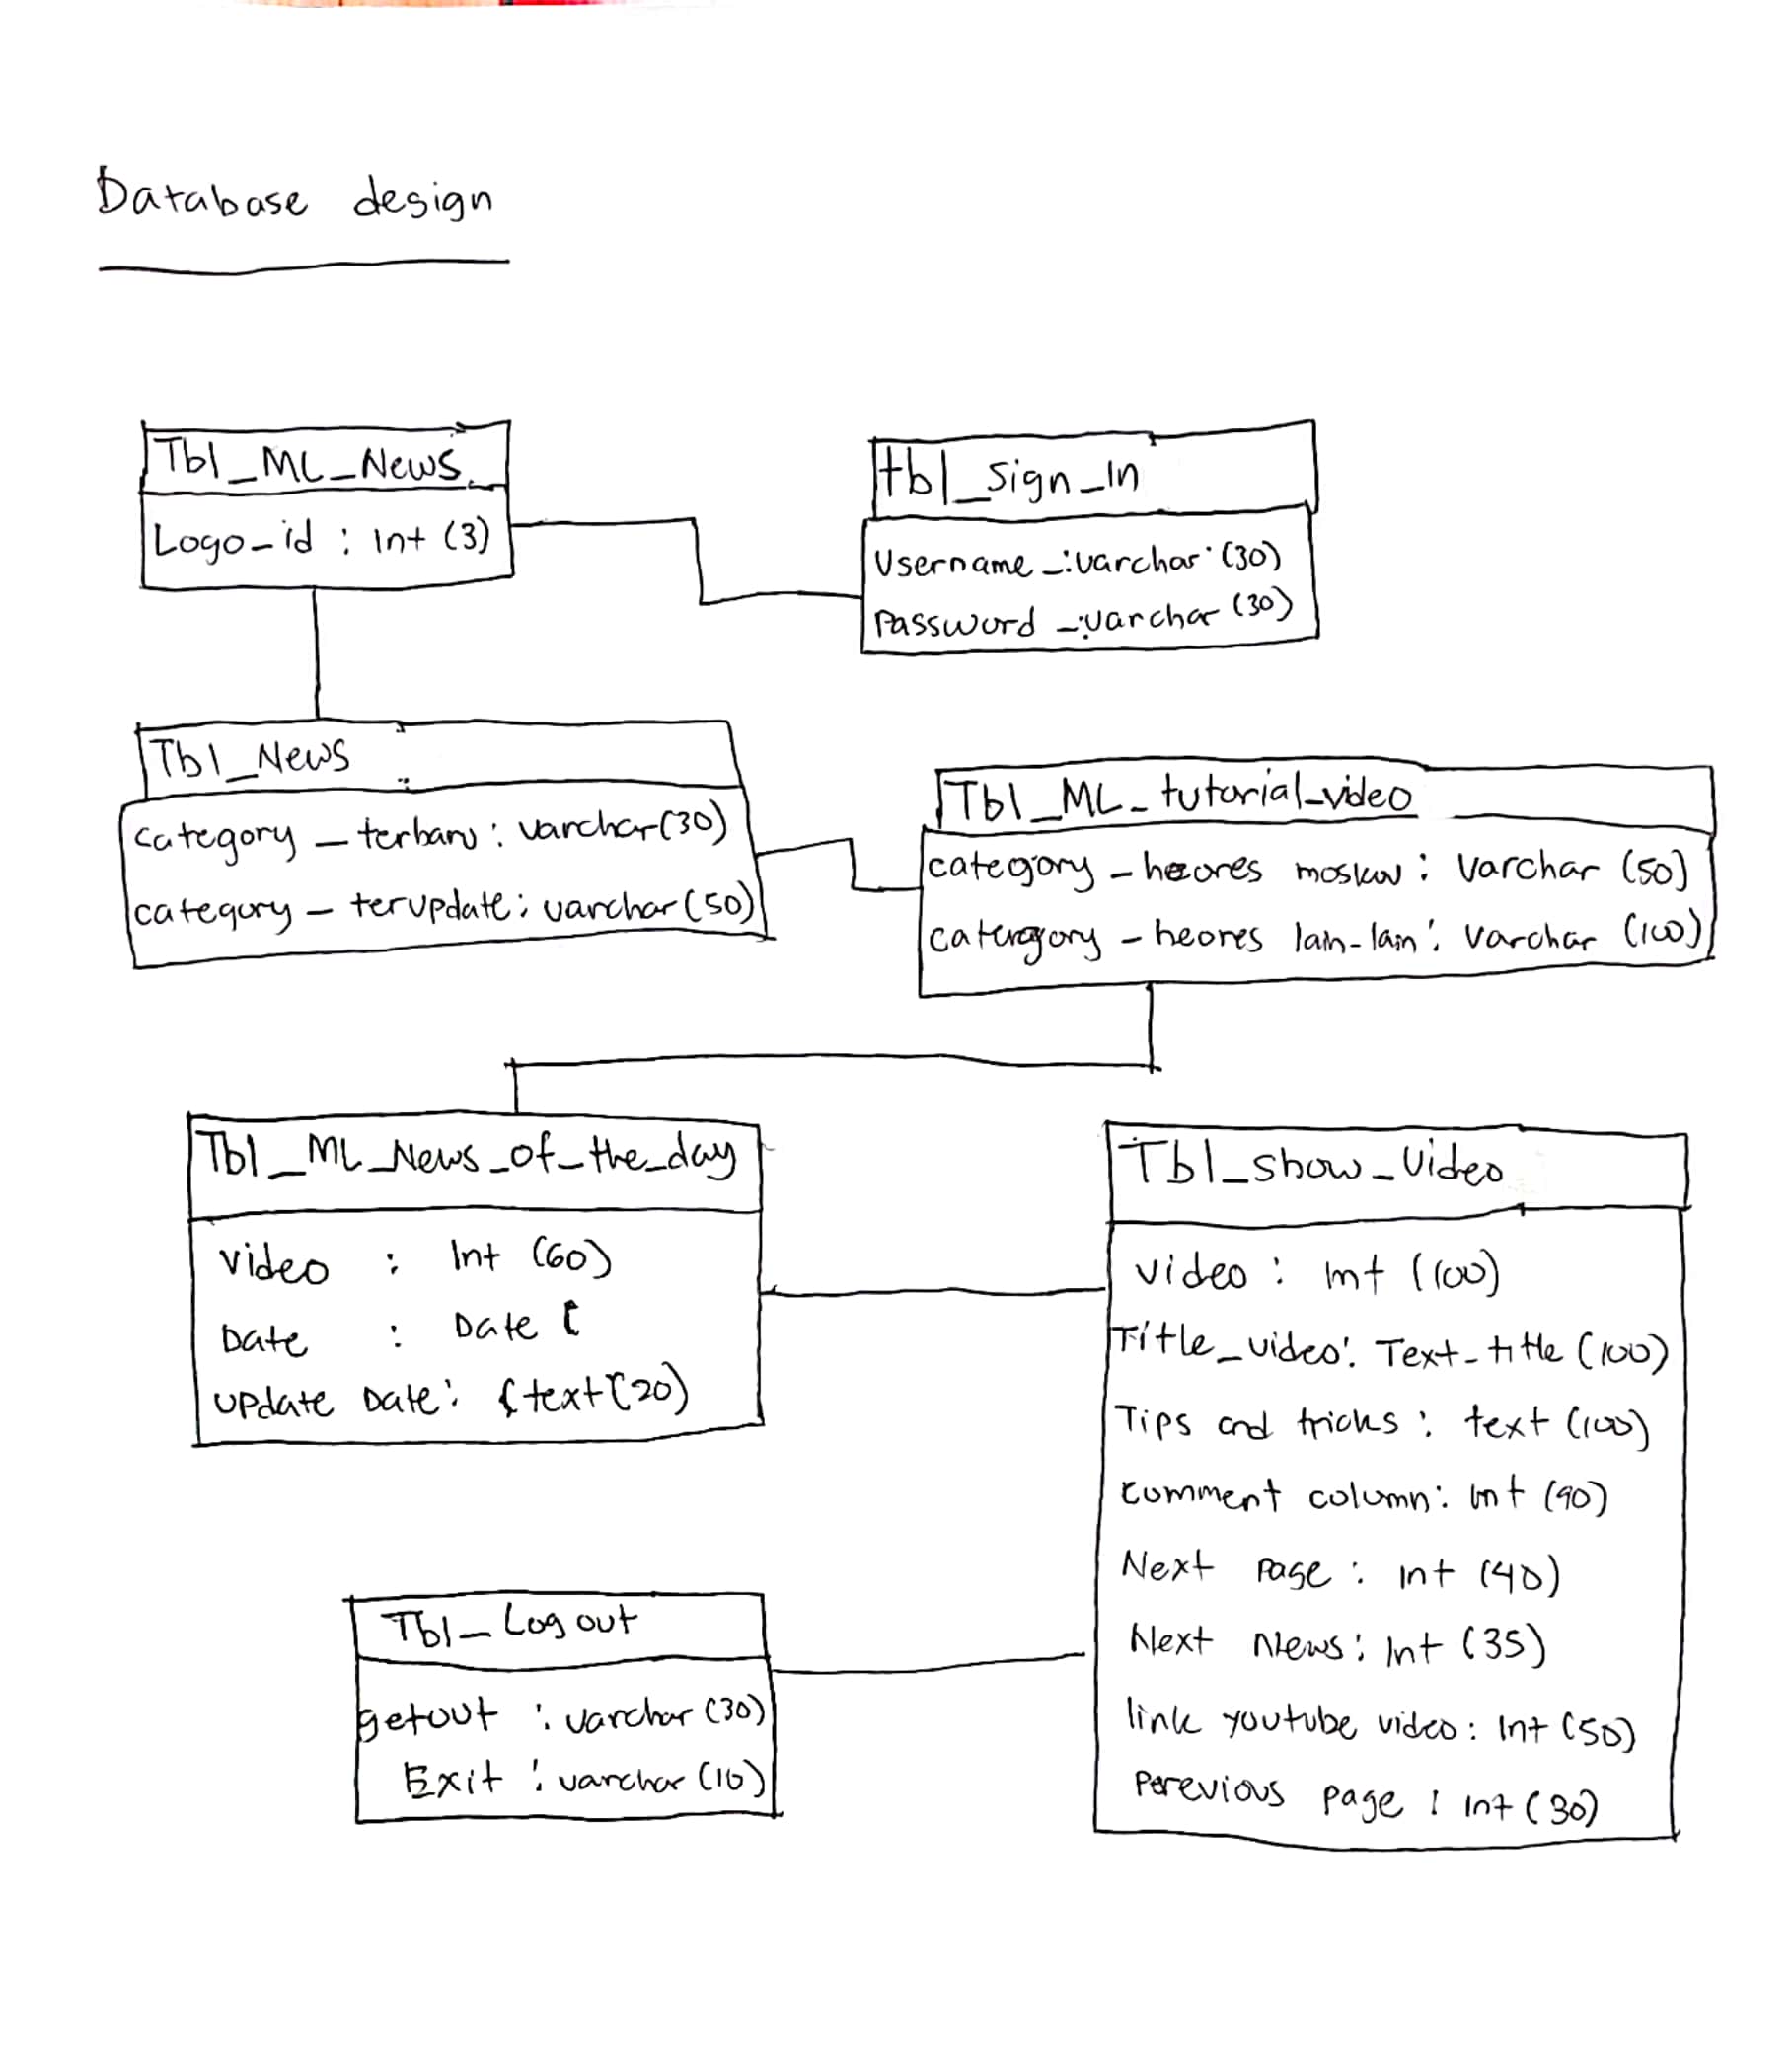 Database design
Tbl_ML_News
Logo_id : Int (3)
tbl_Sign_In
Username_:varchar (30)
Password_:varchar (30)
Tbl_News
category_terbaru : varchar(30)
category_terupdate : varchar(50)
Tbl_ML_tutorial_video
category_heores moskov : Varchar (50)
category_heores lain-lain : Varchar (100)
Tbl_ML_News_of_the_day
Video : Int (60)
Date : Date (
Update Date : (text(20)
Tbl_show_Video
Video : Int (100)
Title_video : Text_title (100)
Tips and tricks : text (100)
comment column : Int (90)
Next Page : Int (40)
Next News : Int (35)
link youtube video : Int (50)
Perevious page : Int (30)
Tbl_Logout
getout : varchar (30)
Exit : varchar (10)